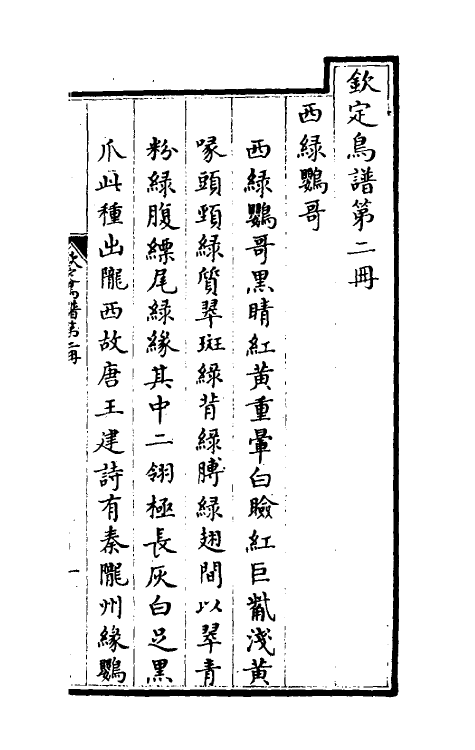 欽定鳥譜第二冊
西綠鸚哥
西綠鸚哥黑睛紅黃重暈白臉紅巨觜淺黃
喙頭頸綠質翠斑綠背綠膊綠翅間以翠青
粉綠腹縹尾綠緣其中二翎極長灰白足黑
爪此種出隴西故唐王建詩有秦隴州緣鸚